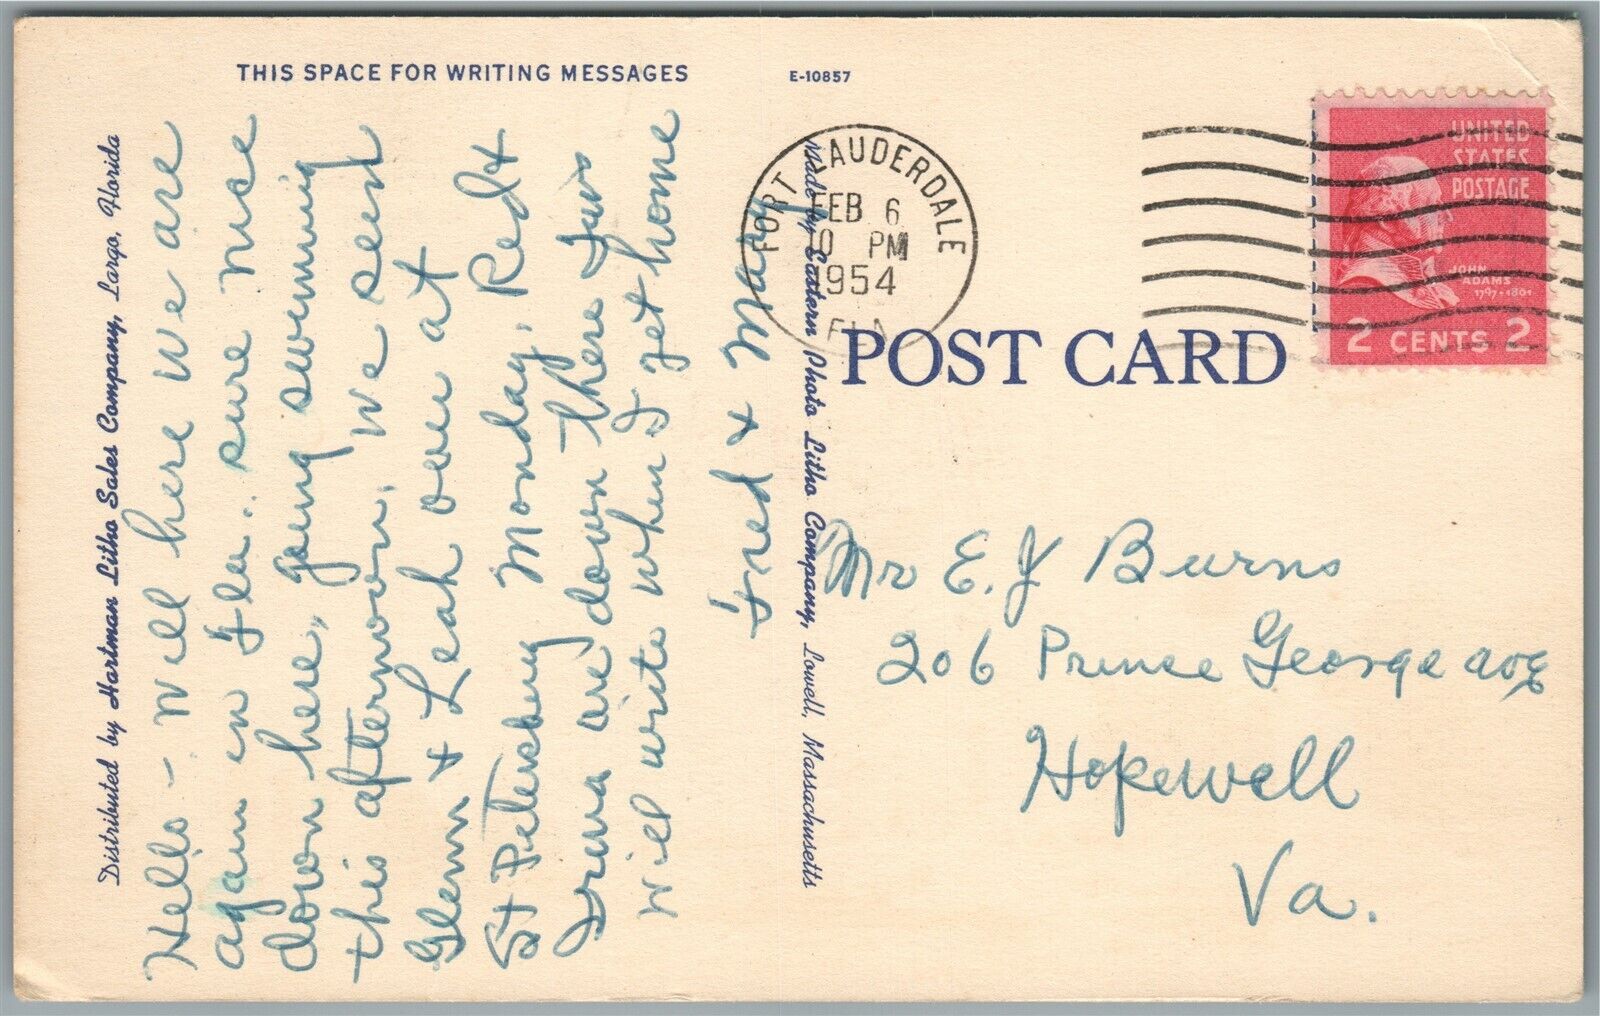 THIS SPACE FOR WRITING MESSAGES
E-10857
Distributed by Hartman Litho Sales Company, Largo, Florida
Hello - Well here we are
again in Fla. sure nice
down here, going swimming
this afternoon. We seen
Glenn & Leah over at
St Petersburg Monday. Red &
Irma are down there too
will write when I get home
Fred & Mary
Made by Eastern Photo Litho Company, Lowell, Massachusetts
FORT LAUDERDALE
FEB 6
PM
1954
FLA
UNITED
STATES
POSTAGE
JOHN
ADAMS
1797-1801
2 CENTS 2
POST CARD
Mr E. J Burns
206 Prince George ave
Hopewell
Va.